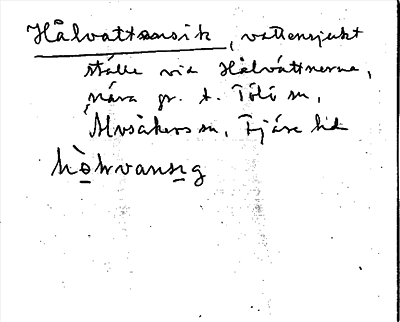 Hålvattensik, vattensjukt
ställe vid Hålvattnerna,
nära gr. t. Tölö sn,
Älvsåkers sn, Fjäre hd
hò̱hvansṉg